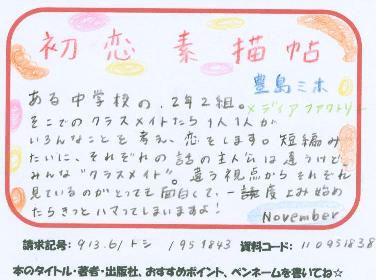 初恋素描帖
豊島ミホ
メディアファクトリー
ある中学校の、2年2組。
そこでのクラスメイトたち1人1人が
いろんなことを考え、恋をします。短編み
たいに、それぞれの話の主人公は違うけど、
みんな"クラスメイト"。違う視点からそれぞれ
見ているのがとっても面白くて、一度よみ始め
たらきっとハマってしまいますよ!
November
請求記号: 913.6/トシ/951843 資料コード: 110951838
本のタイトル・著者・出版社、おすすめポイント、ペンネームを書いてね☆